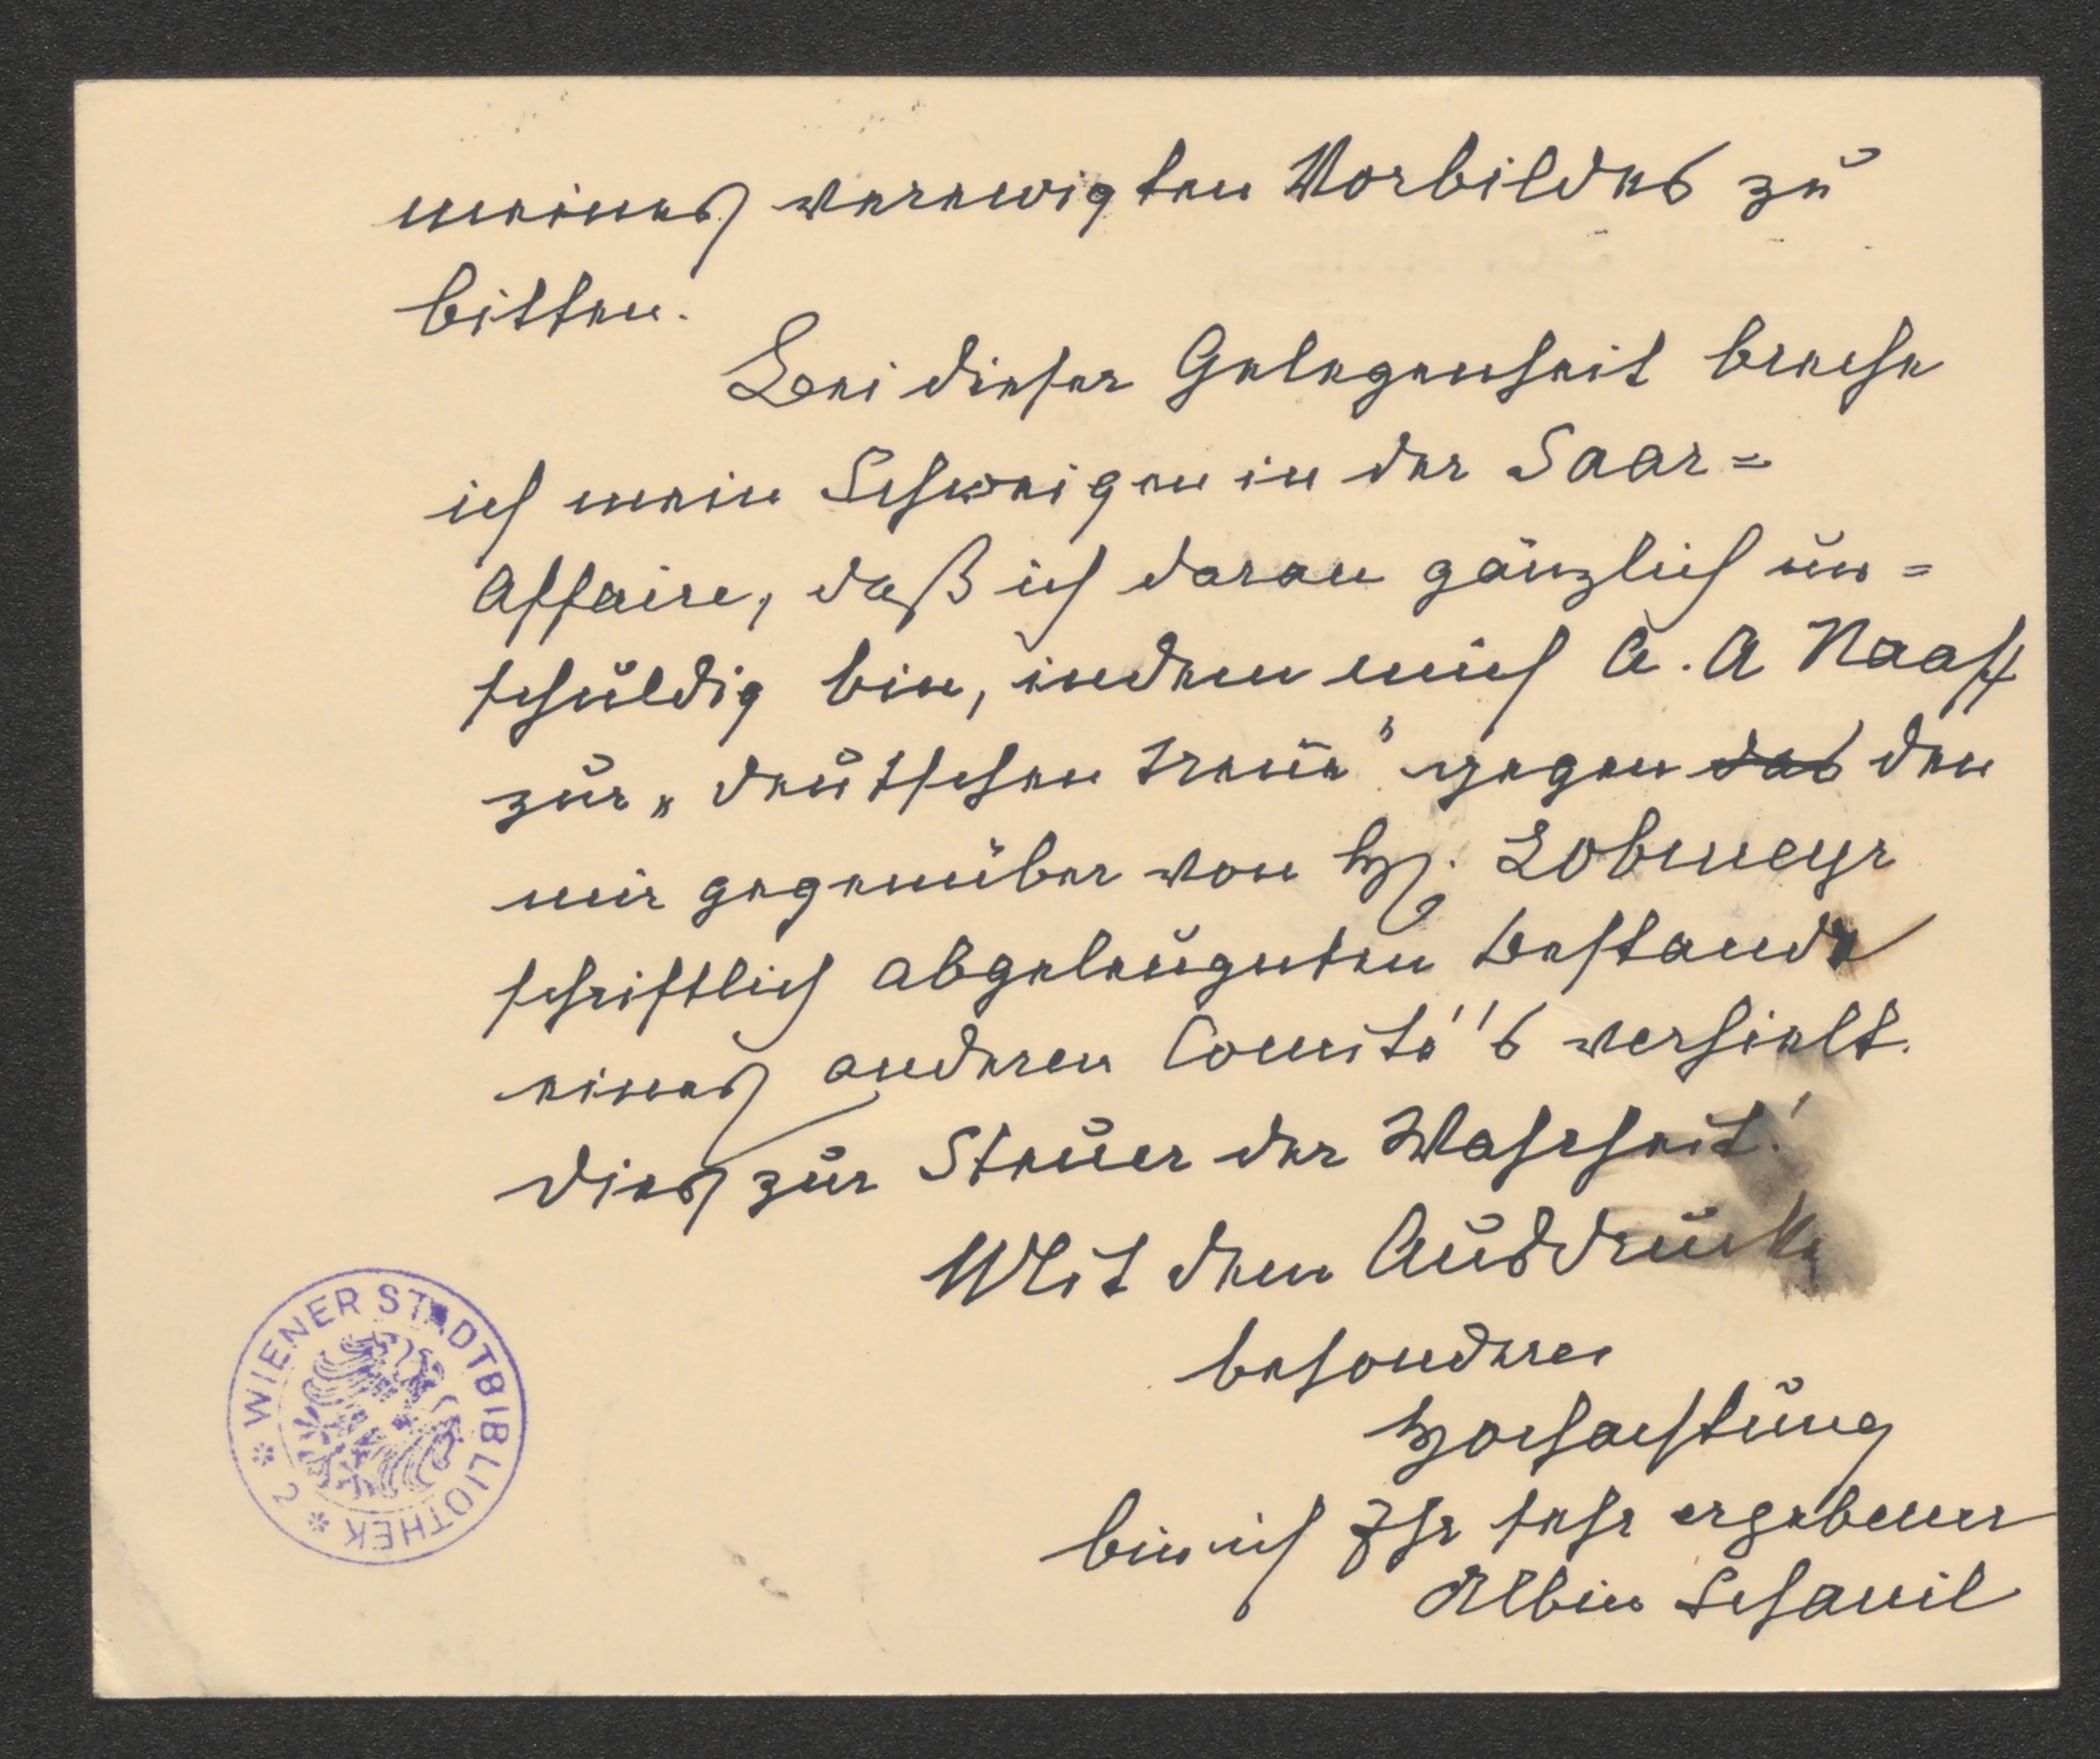 meines verewigten Vorbildes zu
bitten.
Bei dieser Gelegenheit breche
ich mein Schweigen in der Saar=
Affaire, daß ich daran gänzlich un=
schuldig bin, indem mich A. A Naaff
zur „deutschen Treue" gegen das den
mir gegenüber von H. Lobmeyr
schriftlich abgeleugneten Bestande
eines anderen Comité's verhielt.
Dies zur Steuer der Wahrheit!
Mit dem Ausdrucke
besonderer
Hochachtung
bin ich Ihr sehr ergebener
Albin
WIENER STADTBIBLIOTHEK * 2 *